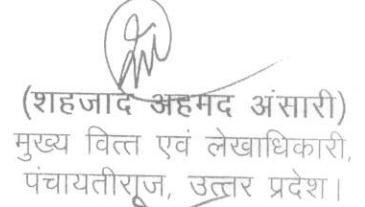 (शहजाद अहमद अंसारी)
मुख्य वित्त एवं लेखाधिकारी,
पंचायतीराज, उत्तर प्रदेश।